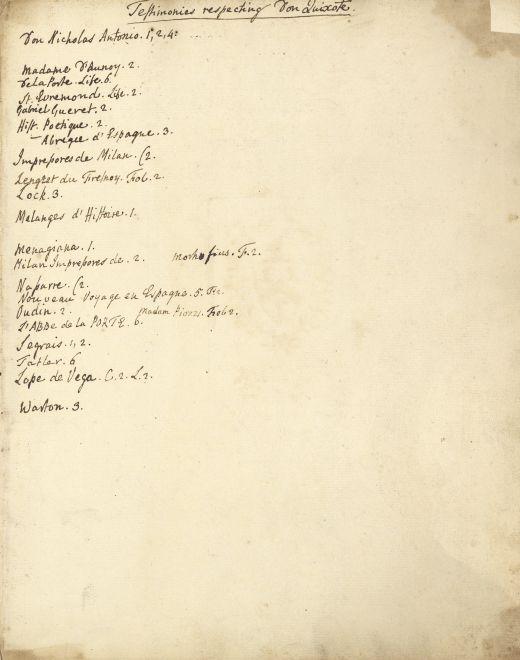 Testimonies respecting Don Quixote.
Don Nicholas Antonio. 1, 2, 4.
Madame D'aunoy. 2.
De la Porte. Life. 6.
St. Evremond. Life. 2.
Gabriel Gueret. 2.
Hist. Poetique. 2.
— Abregée d'Espagne. 3.
Impressores de Milan. (2.
Lenglet du Fresnoy. Fol. 2.
Lock. 3.
Melanges d'Histoire. 1.
Menagiana. 1.
Milan Impressores de. 2. Morhofius. Fr. 2.
Naparre. (2.
Nouveau Voyage en Espagne. 5. Fr.
Oudin. 2. Madam Piozzi. Fol. 2.
L'ABBE de la PORTE. 6.
Segrais. 1, 2.
Tatler. 6
Lope de Vega. C. 2. L. 2.
Warton. 3.